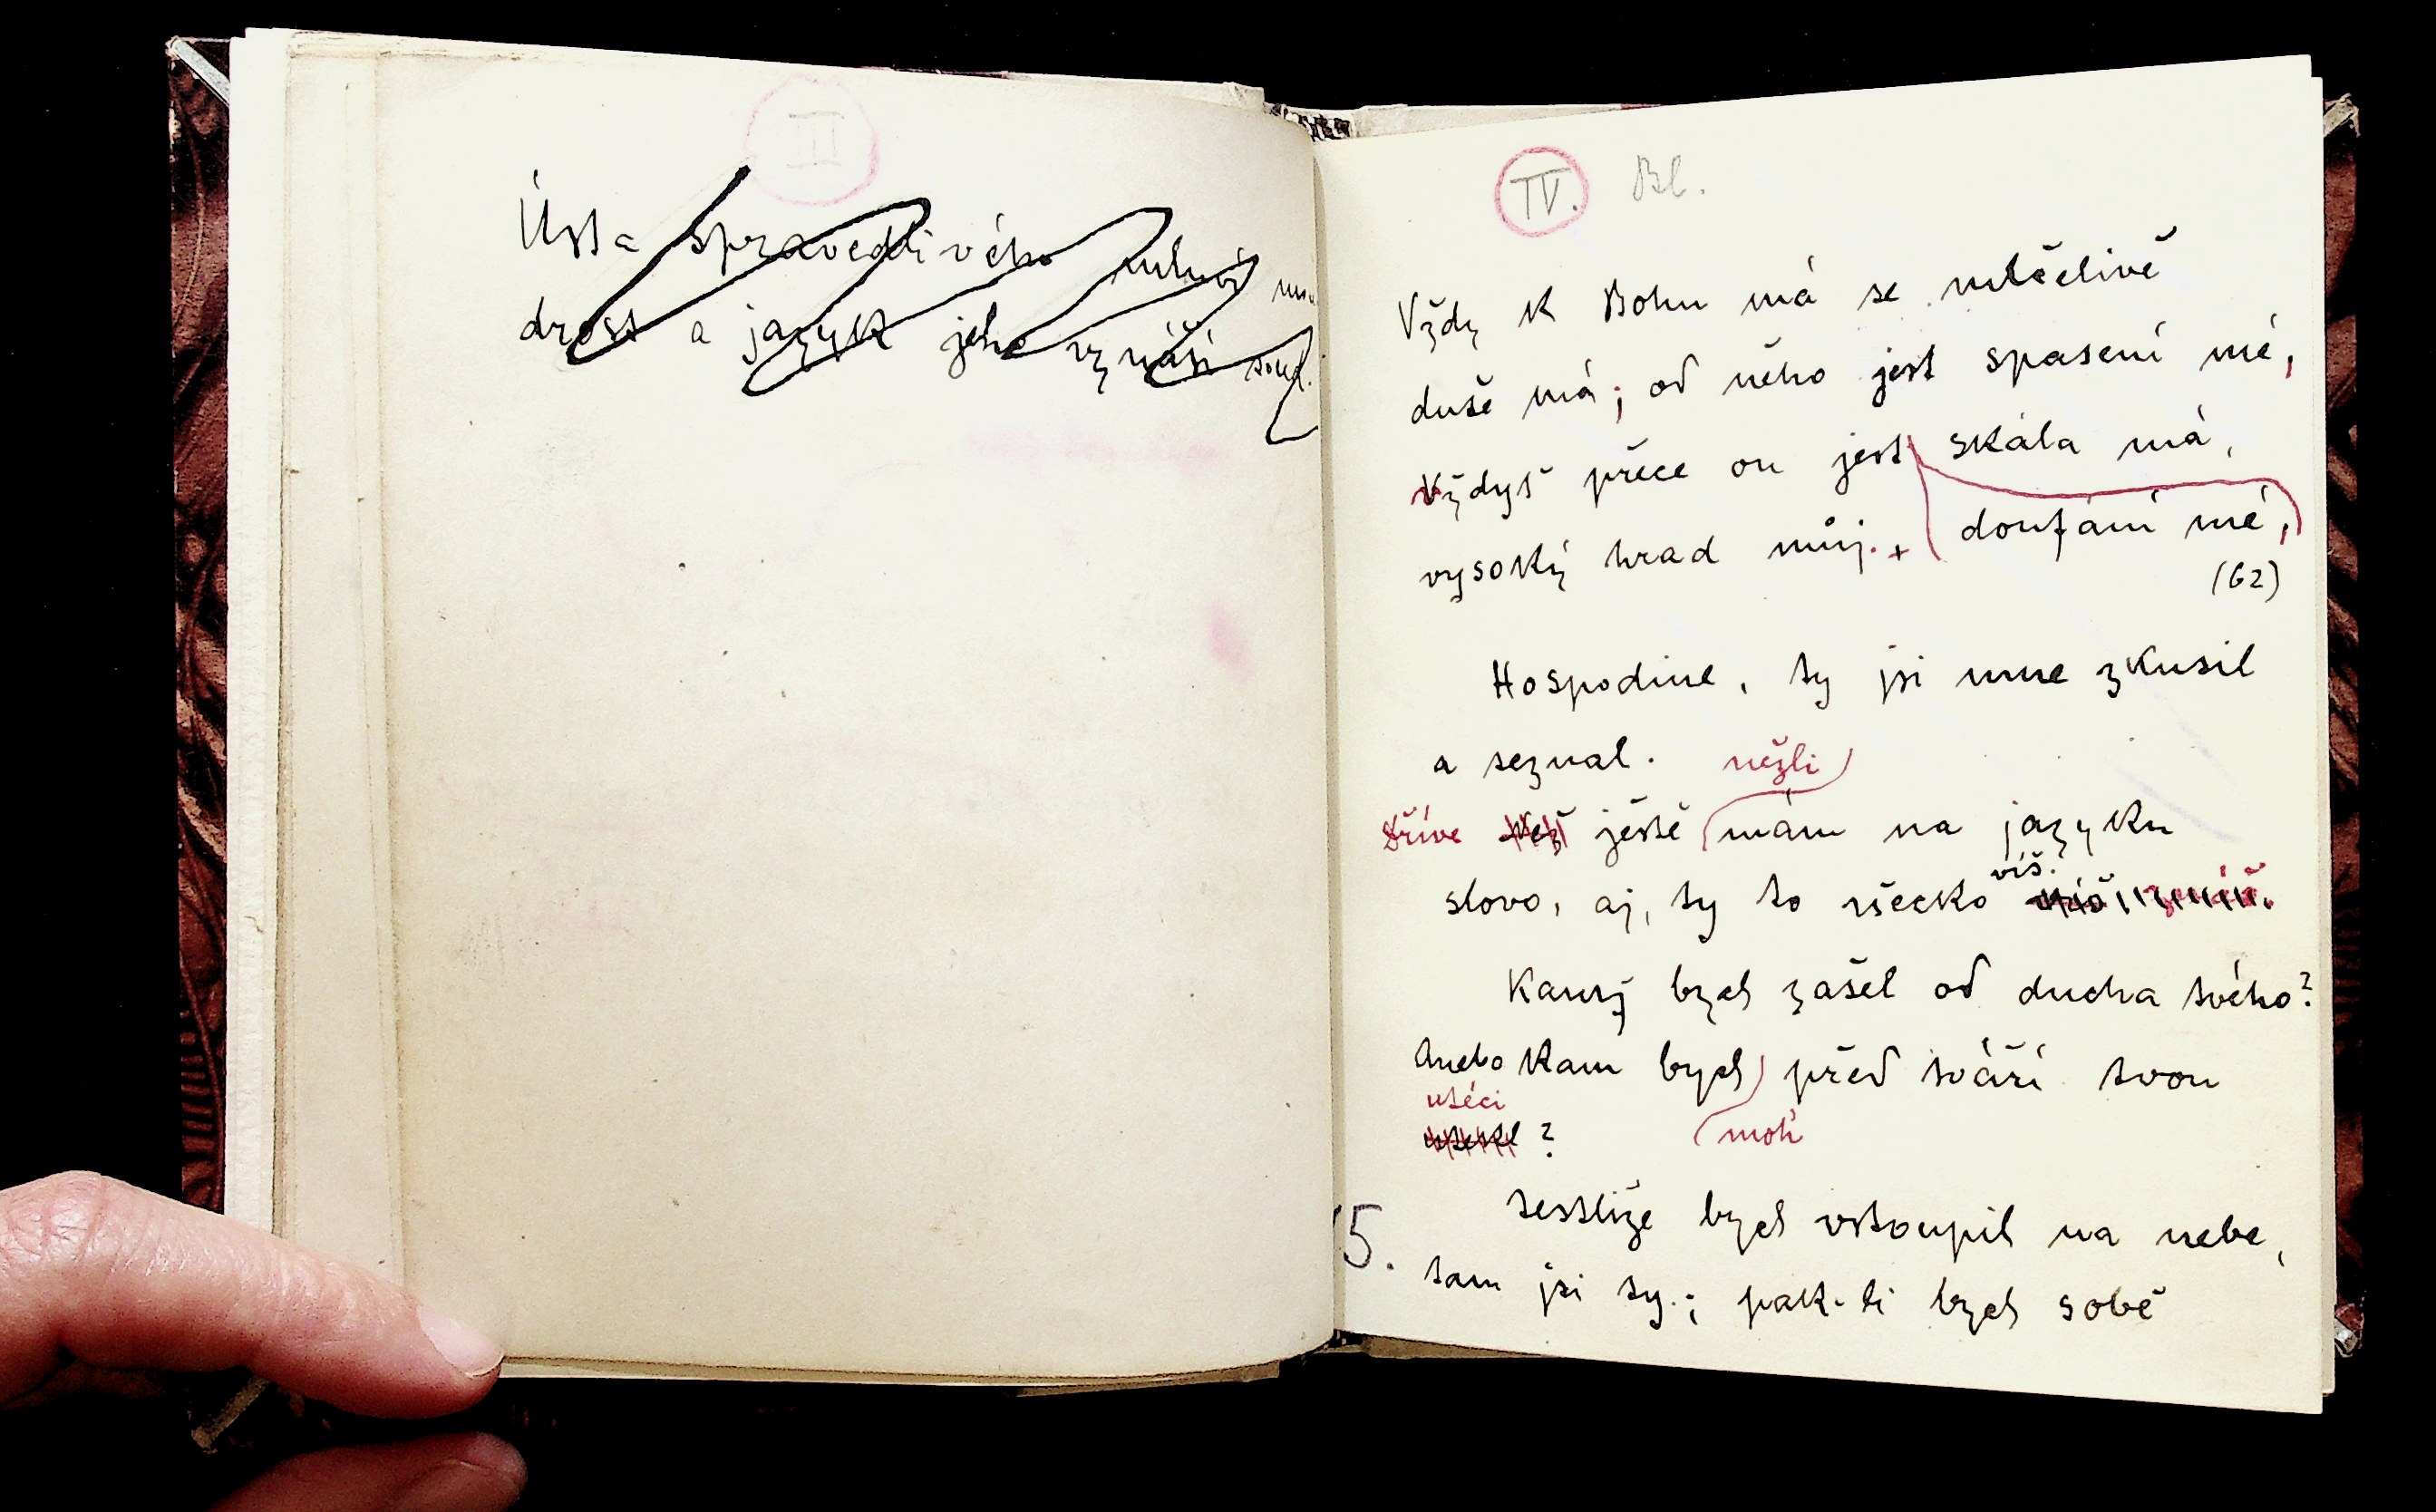 III
Ústa spravedlivého mluví mou
drost a jazyk jeho vynáší soud.
IV. Bl.
Vždy k Bohu má se mlčelivě
duše má; od něho jest spasení mé,
Vždyť přece on jest skála má,
vysoký hrad můj. + doufání mé,
(62)
Hospodine, ty jsi mne zkusil
a seznal. nežli
Dříve než ještě mám na jazyku
víš.
slovo, aj, ty to všecko
Kamž bych zašel od ducha tvého?
Anebo kam bych před tváří tvou
utéci
utekl ? moh'
Jestliže bych vstoupil na nebe,
5.
tam jsi ty.; pak-li bych sobě